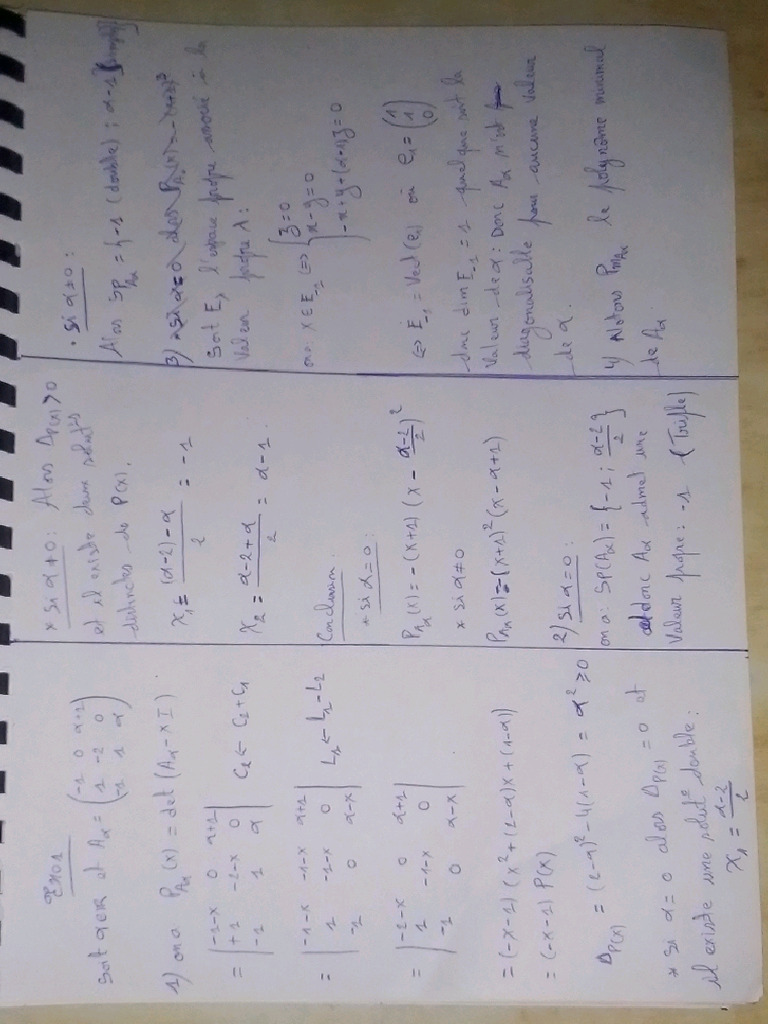 Exo1
Soit α∈ℝ et Aα = (-1 0 α+1
1 -2 0
-1 1 α)
1) on a PAα(X) = det(Aα - XI)
= |-1-X 0 α+1
+1 -2-X 0
-1 1 α| C2 ← C2+C1
= |-1-X -1-X α+1
1 -1-X 0
-1 0 α-X| L1 ← L1-L2
= |-2-X 0 α+1
1 -1-X 0
-1 0 α-X|
= (-X-1)(X²+(2-α)X+(1-α))
= (-X-1) P(X)
ΔP(X) = (2-α)²-4(1-α) = α² ≥ 0
* Si α = 0 alors ΔP(X) = 0 et
il existe une solut° double :
X1 = (α-2)/2
* Si α≠0 : Alors ΔP(X) > 0
et il existe deux solut°s
distinctes de P(X).
X1 = ((α-2)-α)/2 = -1
X2 = (α-2+α)/2 = α-1.
Conclusion :
* Si α=0 :
PAα(X) = -(X+1)(X - (α-2)/2)²
* Si α≠0
PAα(X) = -(X+1)²(X-α+1)
2) Si α=0 :
on a : Sp(Aα) = {-1 ; (α-2)/2}
donc Aα admet une
Valeur propre : -1 (Triple)
• Si α≠0 :
Alors SpAα = {-1 (double) ; α-1 (simple)}
3) * Si α=0 alors PAα(X) = -(X+1)³
Soit Eλ l'espace propre associé à la
Valeur propre λ :
on a X∈E-1 ⇔ {z=0
x-y=0
-x+y+(α+1)z=0
⇔ E-1 = Vect(e1) où e1 = (1
1
0)
donc dim E-1 = 1 quelque soit la
Valeur de α : Donc Aα n'est
diagonalisable pour aucune Valeur
de α.
4) Notons PmAα le polynôme minimal
de Aα